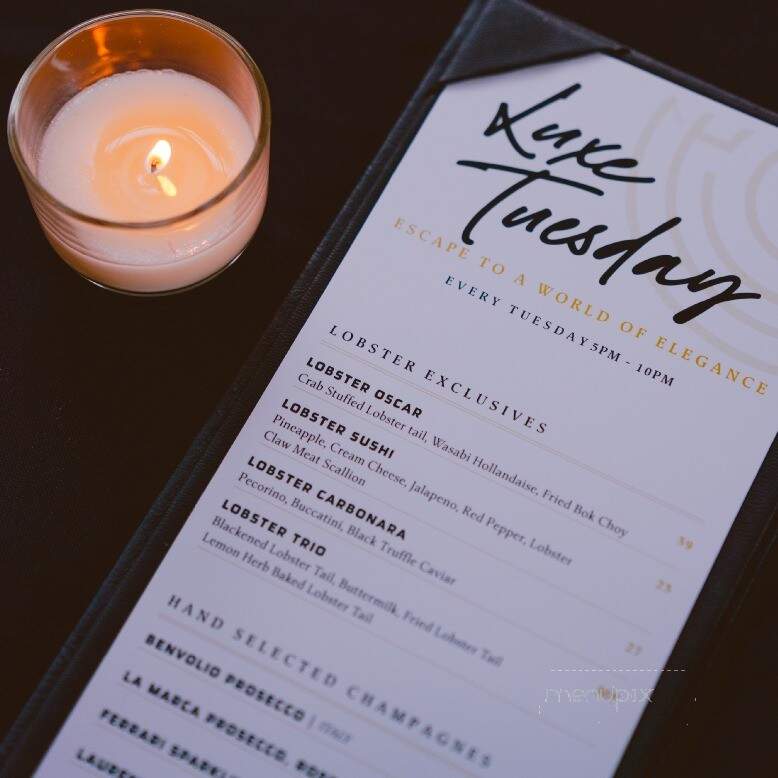 Luxe
Tuesday
ESCAPE TO A WORLD OF ELEGANCE
EVERY TUESDAY 5PM - 10PM
LOBSTER EXCLUSIVES
LOBSTER OSCAR
Crab Stuffed Lobster tail, Wasabi Hollandaise, Fried Bok Choy
39
LOBSTER SUSHI
Pineapple, Cream Cheese, Jalapeno, Red Pepper, Lobster
Claw Meat Scallion
23
LOBSTER CARBONARA
Pecorino, Buccatini, Black Truffle Caviar
27
LOBSTER TRIO
Blackened Lobster Tail, Buttermilk, Fried Lobster Tail
Lemon Herb Baked Lobster Tail
HAND SELECTED CHAMPAGNES
BENVOLIO PROSECCO | ITALY
LA MARCA PROSECCO,
FERRARI
menupix